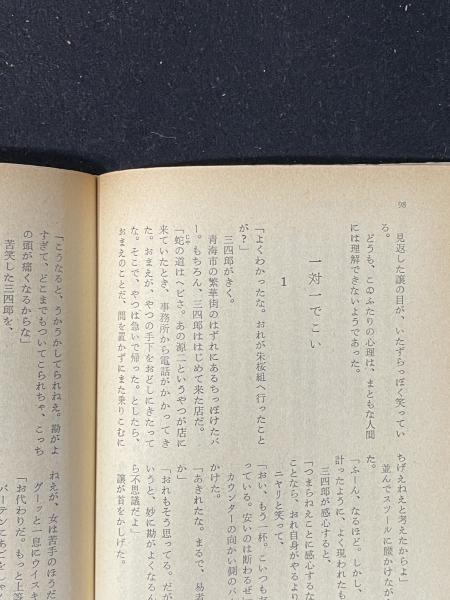 98
見返した譲の目が、いたずらっぽく笑ってい
る。
どうも、このふたりの心理は、まともな人間
には理解できないようであった。
一対一でこい
1
「よくわかったな。おれが朱桜組へ行ったこと
が?」
三四郎がきく。
青海市の繁華街のはずれにあるちっぽけたバ
ー。もちろん、三四郎ははじめて来た店だ。
「蛇の道はヘビさ。あの源二というやつが店に
来ていたとき、事務所から電話がかかってき
た。おまえが、やつの手下をおどしにきたって
な。そこで、やつは急いで帰った。としたら、
おまえのことだ、間を置かずにまた乗りこむに
ちげえねえと考えたからよ」
並んでスツールに腰かけなが
た。
「ふーん、なるほど。しかし、
計ったように、よく現われたも
三四郎が感心すると、
「つまらねえことに感心するな
ことなら、おれ自身がやるより
ニヤリと笑って、
「おい、もう一杯。こいつも
っている。安いのは断わるぜ
カウンターの向かい側のバ
かけた。
「あきれたな。まるで、易者
か」
「おれもそう思ってる。だが
いうと、妙に勘がよくなるん
ら不思議だよ」
譲が首をかしげた。
「こうなると、うかうかしてられねえ。勘がよ
すぎて、どこまでもついてこられちゃ、こっち
の頭が痛くなるからな」
苦笑した三四郎を、
ねえが、女は苦手のほうだ
グーッと一息にウイスキ
「お代わりだ。もっと上等
バーテンにあごをしゃ